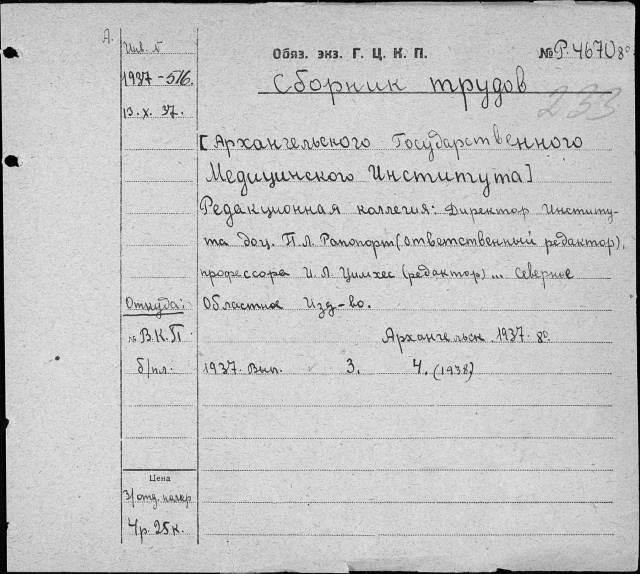 А.
Инв. №
Обяз. экз. Г. Ц. К. П.
№ Р. 4670 8°
1937-516.
Сборник трудов
13. X. 37.
233
[Архангельского Государственного
Медицинского Института]
Редакционная коллегия: Директор Институ-
та доц. П. Л. Рапопорт (ответственный редактор),
профессора И. Л. Цимхес (редактор) ... Северное
Откуда:
Областное Изд-во.
В. К. П
Архангельск 1937. 8°
б/пл.
1937. Вып. 3. 4. (1938)
Цена
З/отд. номер
4р. 25к.